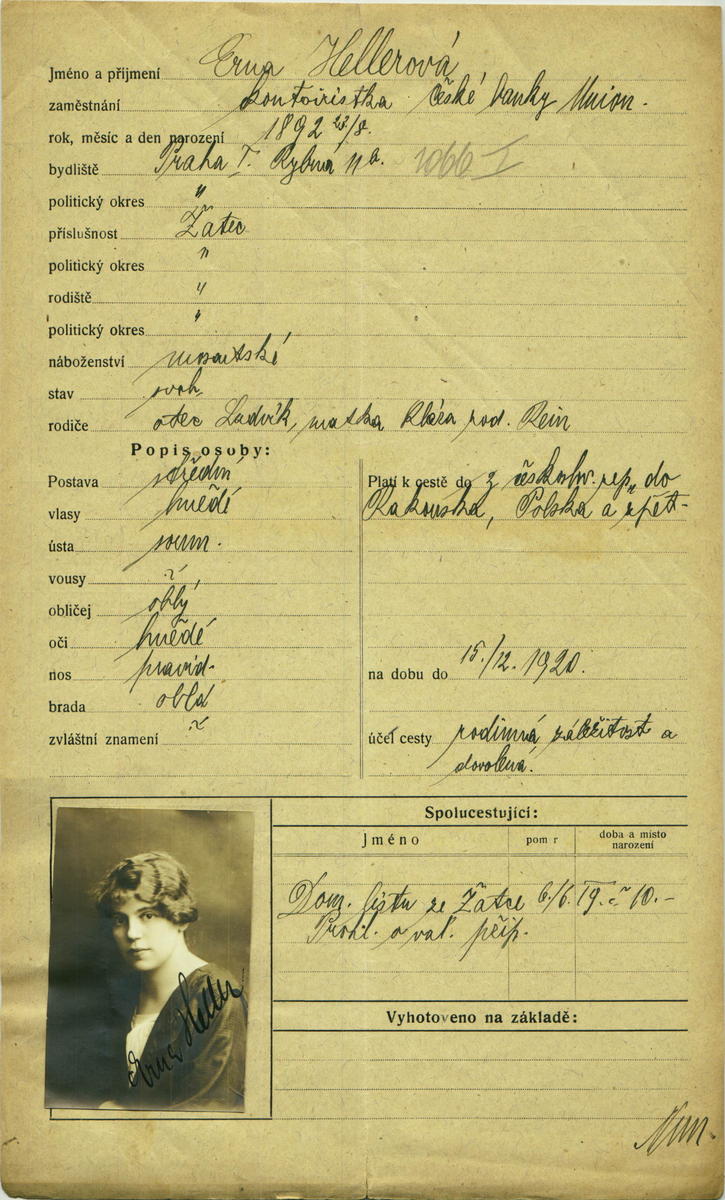 Jméno a příjmení Erna Hellerová
zaměstnání kontoiristka české banky Union.
rok, měsíc a den narození 1892 23/8.
bydliště Praha I. Rybná 11 1066 I
politický okres "
příslušnost Žatec
politický okres "
rodiště "
politický okres "
náboženství mosaitské
stav svob.
rodiče otec Ludvík, matka Klára rod. Rein
Popis osoby:
Postava střední
vlasy hnědé
ústa soum.
vousy
obličej oblý
oči hnědé
nos pravid.
brada oblá
zvláštní znamení
Platí k cestě do z českoslov. rep. do
Rakouska, Polska a zpět
na dobu do 15./12. 1920.
účel cesty rodinná záležitost a
dovolená.
Spolucestující:
Jméno pom r doba a místo
narození
Dom. listu ze Žatce 6./6. 19. č 10.-
Prohl. o val. příp.
Vyhotoveno na základě:
Erna Heller